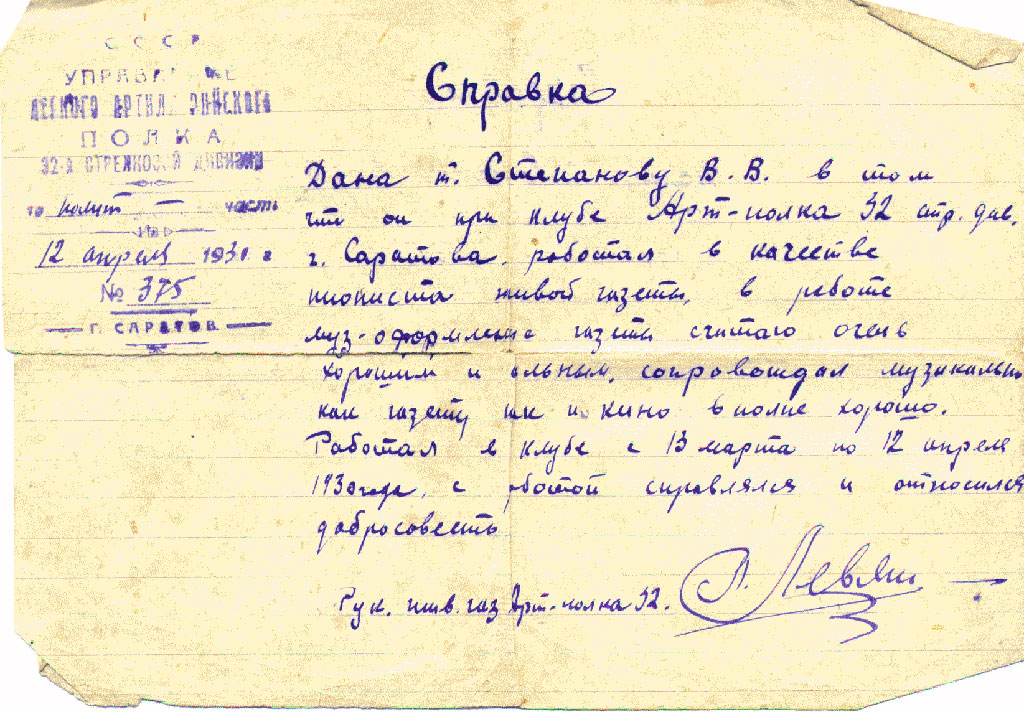 СССР
УПРАВЛЕНИЕ
ЛЕГКОГО АРТИЛЛЕРИЙСКОГО
ПОЛКА
32-й СТРЕЛКОВОЙ ДИВИЗИИ
по полит — часть
12 апреля 1930 г
№ 375
Г. САРАТОВ
Справка
Дана т. Степанову В. В. в том
что он при клубе Арт-полка 32 стр. див.
г. Саратова. работал в качестве
пиониста живой газеты, в работе
муз-оформление газеты считаю очень
хорошим и сильным, сопровождал музыкально
как газету так и кино вполне хорошо.
Работал в клубе с 13 марта по 12 апреля
1930 года, с работой справлялся и относился
добросовестно
Рук. жив. газ Арт-полка 32. Левин